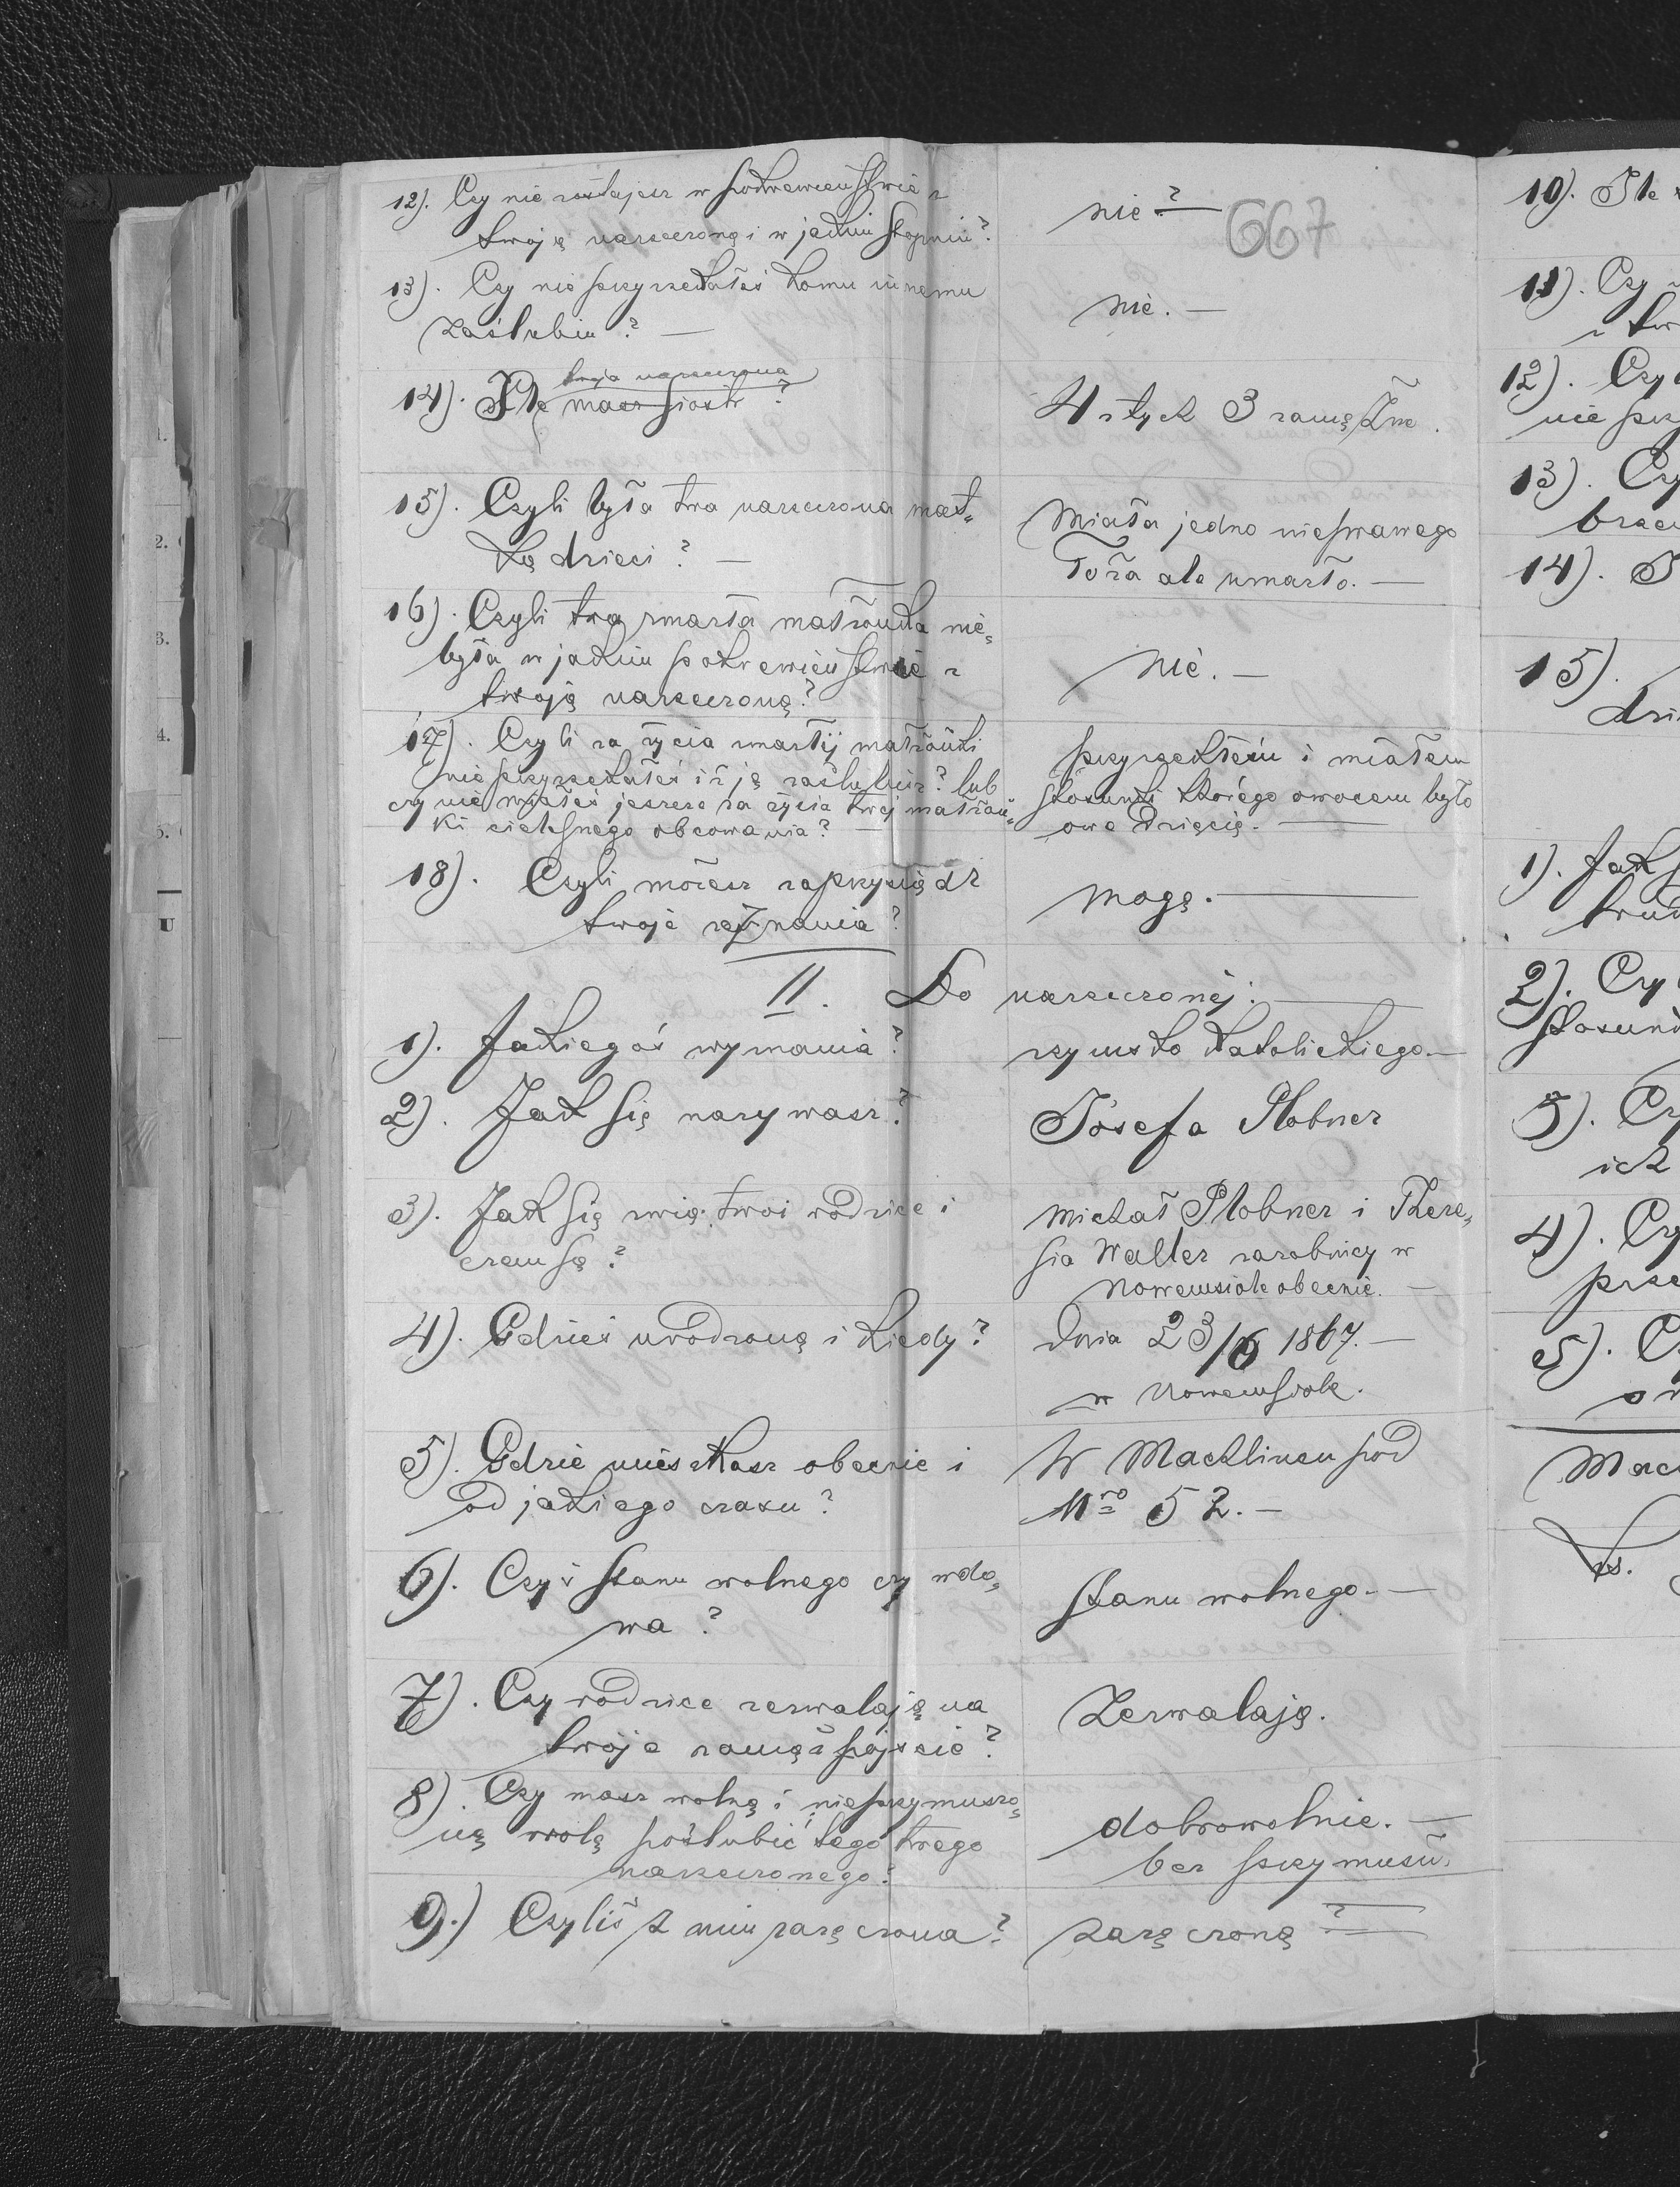 12). Czy nie zostajesz w pokrewieństwie z
twoją narzeczoną i w jakim stopniu?
nie. —
667
13). Czy nie przyrzekałeś komu innemu
zaślubin? —
nie. —
twoja narzeczona
14). Ile masz siostr?
4 z tych 3 zamężne.
15). Czyli była twa narzeczona mat„
ką dzieci? —
Miała jedno nieprawego
łoża ale umarło. —
16). Czyli twa zmarła małżonka nie„
była w jakim pokrewieństwie z
twoją narzeczoną?
nie. —
17). Czyli za życia zmarłej małżonki
nie przyrzekałeś iż ją zaślubisz? lub
czy nie miałeś jeszcze za życia twej małżon„
ki cielesnego obcowania? —
przyrzekłem i miałem
stosunki którego owocem było
owe dziecię. —
18). Czyli możesz zaprzysiądz
twoje zeznania?
mogę. —
II. Do narzeczonej: —
1). Jakiegoś wyznania?
rzymsko katolickiego. —
2). Jak się nazywasz?
Józefa Plobner
3). Jak się zwią twoi rodzice i
czem są?
Michał Plobner i There„
sia Walter zarobnicy w
Nowemsiole obecnie. —
4). Gdzieś urodzoną i kiedy?
dnia 23/6 1867. —
w Nowemsiole.
5). Gdzie mieszkasz obecnie i
od jakiego czasu?
W Machlincu pod
Nro 52. —
6). Czyś stanu wolnego czy wdo„
wa?
stanu wolnego. —
7). Czy rodzice zezwalają na
twoje zamęż pójście?
Zezwalają.
8). Czy masz wolną i nieprzymuszo„
ną wolę poślubić tego twego
narzeczonego?
dobrowolnie. —
bez przymusu.
9.) Czyliś z nim zaręczona?
zaręczoną
10). Ile
11). Czy
z tw
12). Czy
nie przy
13). Czy
brac
14). I
15).
dzi
1). Jak
trud
2). Czy
stosunk
3). Cz
ich
4). Czy
prze
5). C
Mach